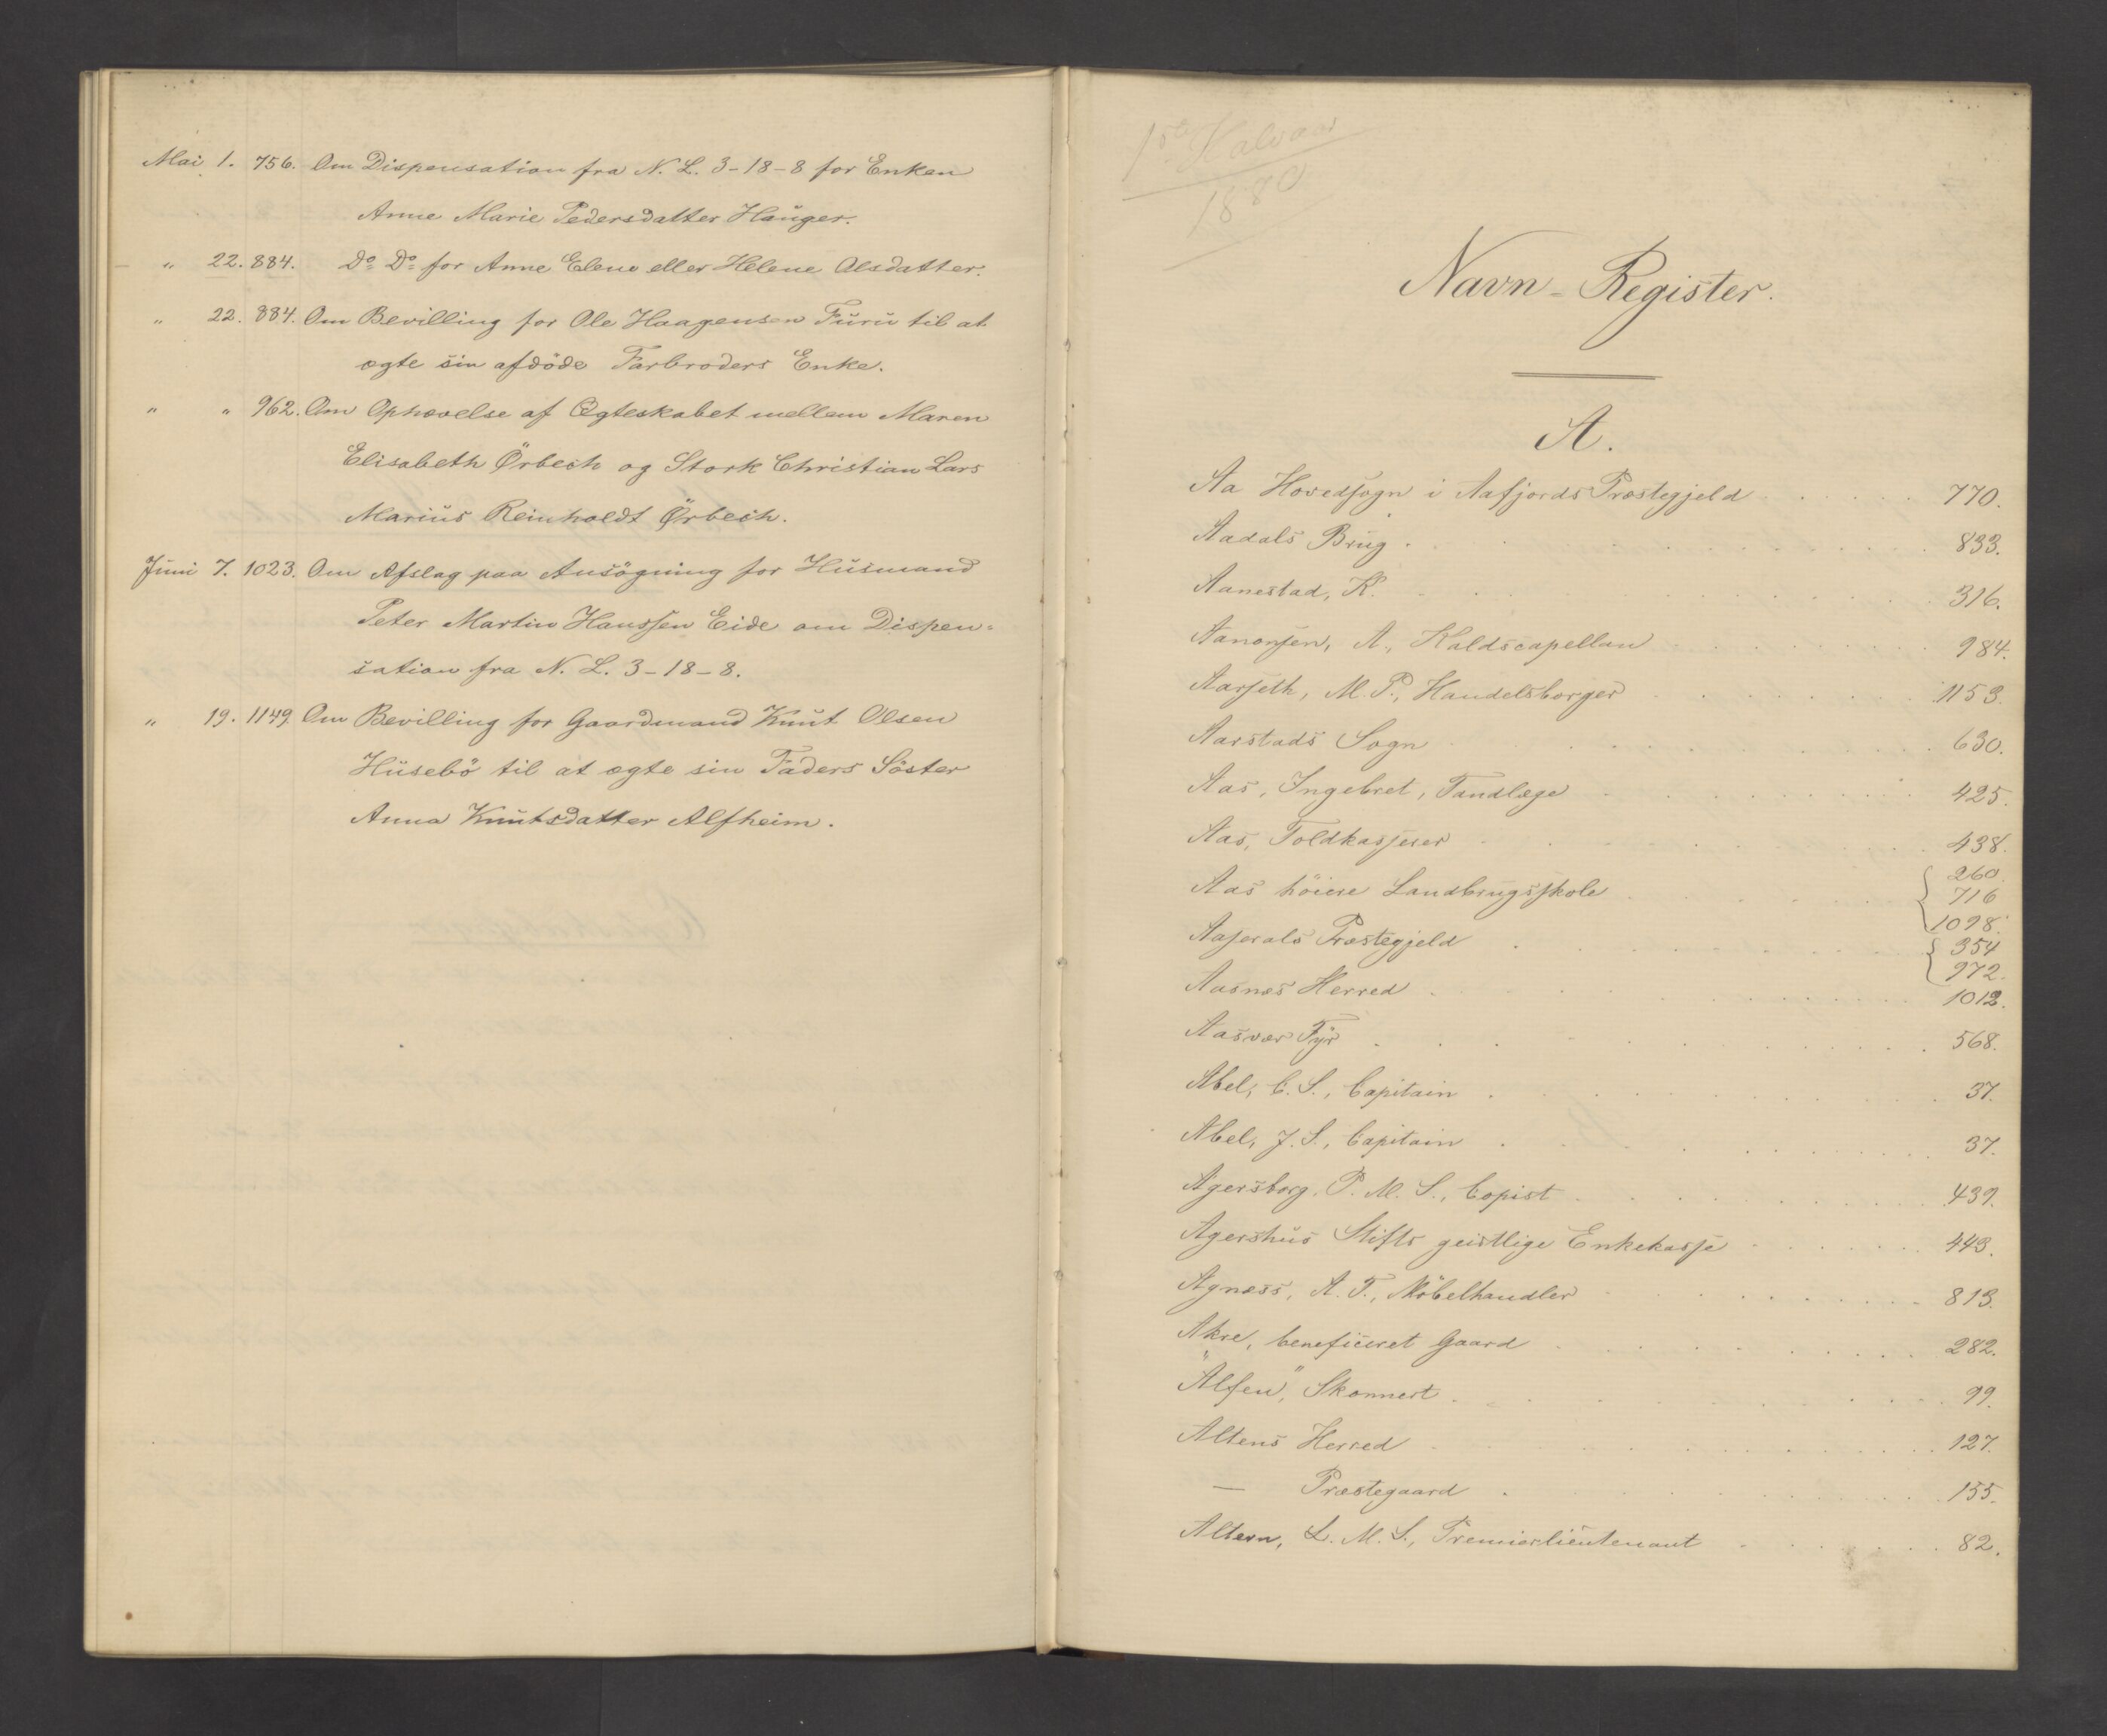 Mai 1. 756. Om Dispensation fra N. L. 3-18-8 for Enken
Anne Marie Pedersdatter Hauger.
" 22. 884. Do Do for Anne Elene eller Helene Olsdatter.
" 22. 884. Om Bevilling for Ole Haagensen Furu til at
ægte sin afdöde Farbroders Enke.
" " 962. Om Ophævelse af Ægteskabet mellem Maren
Elisabeth Örbech og Stork Christian Lars
Marius Reinholdt Örbech.
Juni 7. 1023. Om Afslag paa Ansögning for Husmand
Peter Martin Hanssen Eide om Dispen-
sation fra N. L. 3-18-8.
" 19. 1149. Om Bevilling for Gaardmand Knut Olsen
Husebö til at ægte sin Faders Söster
Anna Knutsdatter Alfheim.
1ste Halvaar
1880
Navn-Register.
A.
Aa Hovedsogn i Aafjords Præstegjeld 770.
Aadals Brug 833.
Aanestad, K. 316.
Aanonsen, A., Kaldscapellan 984.
Aarseth, M. P., Handelsborger 1153.
Aarstads Sogn 630.
Aas, Ingebret, Tandlæge 425.
Aas, Toldkasserer 438.
Aas höiere Landbrugsskole { 260. 716 1098.
Aaserals Præstegjeld { 354 972.
Aasnæs Herred 1012.
Aasvær Fyr 568.
Abel, C. S., Capitain 37.
Abel, J. S., Capitain 37.
Agersborg, P. M. S., Copist 439.
Agershus Stifts geistlige Enkekasse 443.
Agnæss, A. T., Möbelhandler 813.
Akre, beneficeret Gaard 282.
"Alfen", Skonnert 99.
Altens Herred 127.
— Præstegaard 155.
Altern, L. M. S., Premierlieutenant 82.